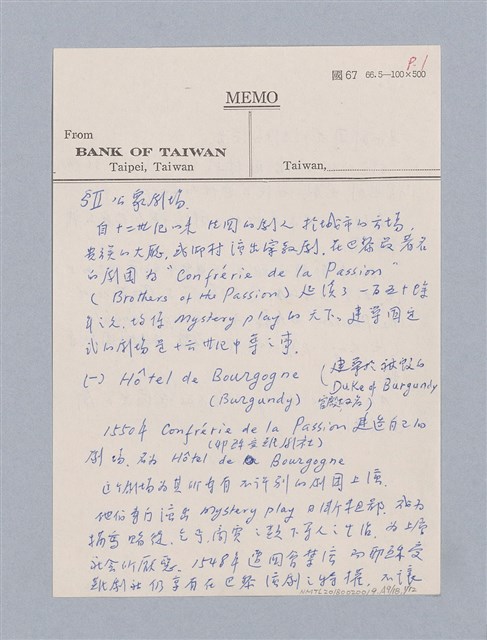 P.1
國67 66.5—100×500
MEMO
From
BANK OF TAIWAN
Taipei, Taiwan
Taiwan,
§II 公眾劇場
自十二世紀以來 法國的劇人 於城市的廣場,
貴族的大廳, 或鄉村演出宗教劇. 在巴黎最著名
的劇團為 "Confrérie de la Passion"
(Brothers of the Passion) 延續了一百五十餘
年之久, 均係 Mystery play 的天下. 建築固定
式的劇場是十六世紀中葉之事.
(一) Hôtel de Bourgogne (建築於被毀的
(Burgundy) Duke of Burgundy
1550年 Confrérie de la Passion 建造自己的
(即受難劇社)
劇場. 名為 Hôtel de Bourgogne
這個劇場為其所專有 不許別的劇團上演.
他們專門演出 Mystery play 日漸
描寫 之類下等人之生活, 為上層
社會所厭惡. 1548年遭國會禁演 而耶穌受
難劇社仍享有在巴黎演劇之特權. 不讓